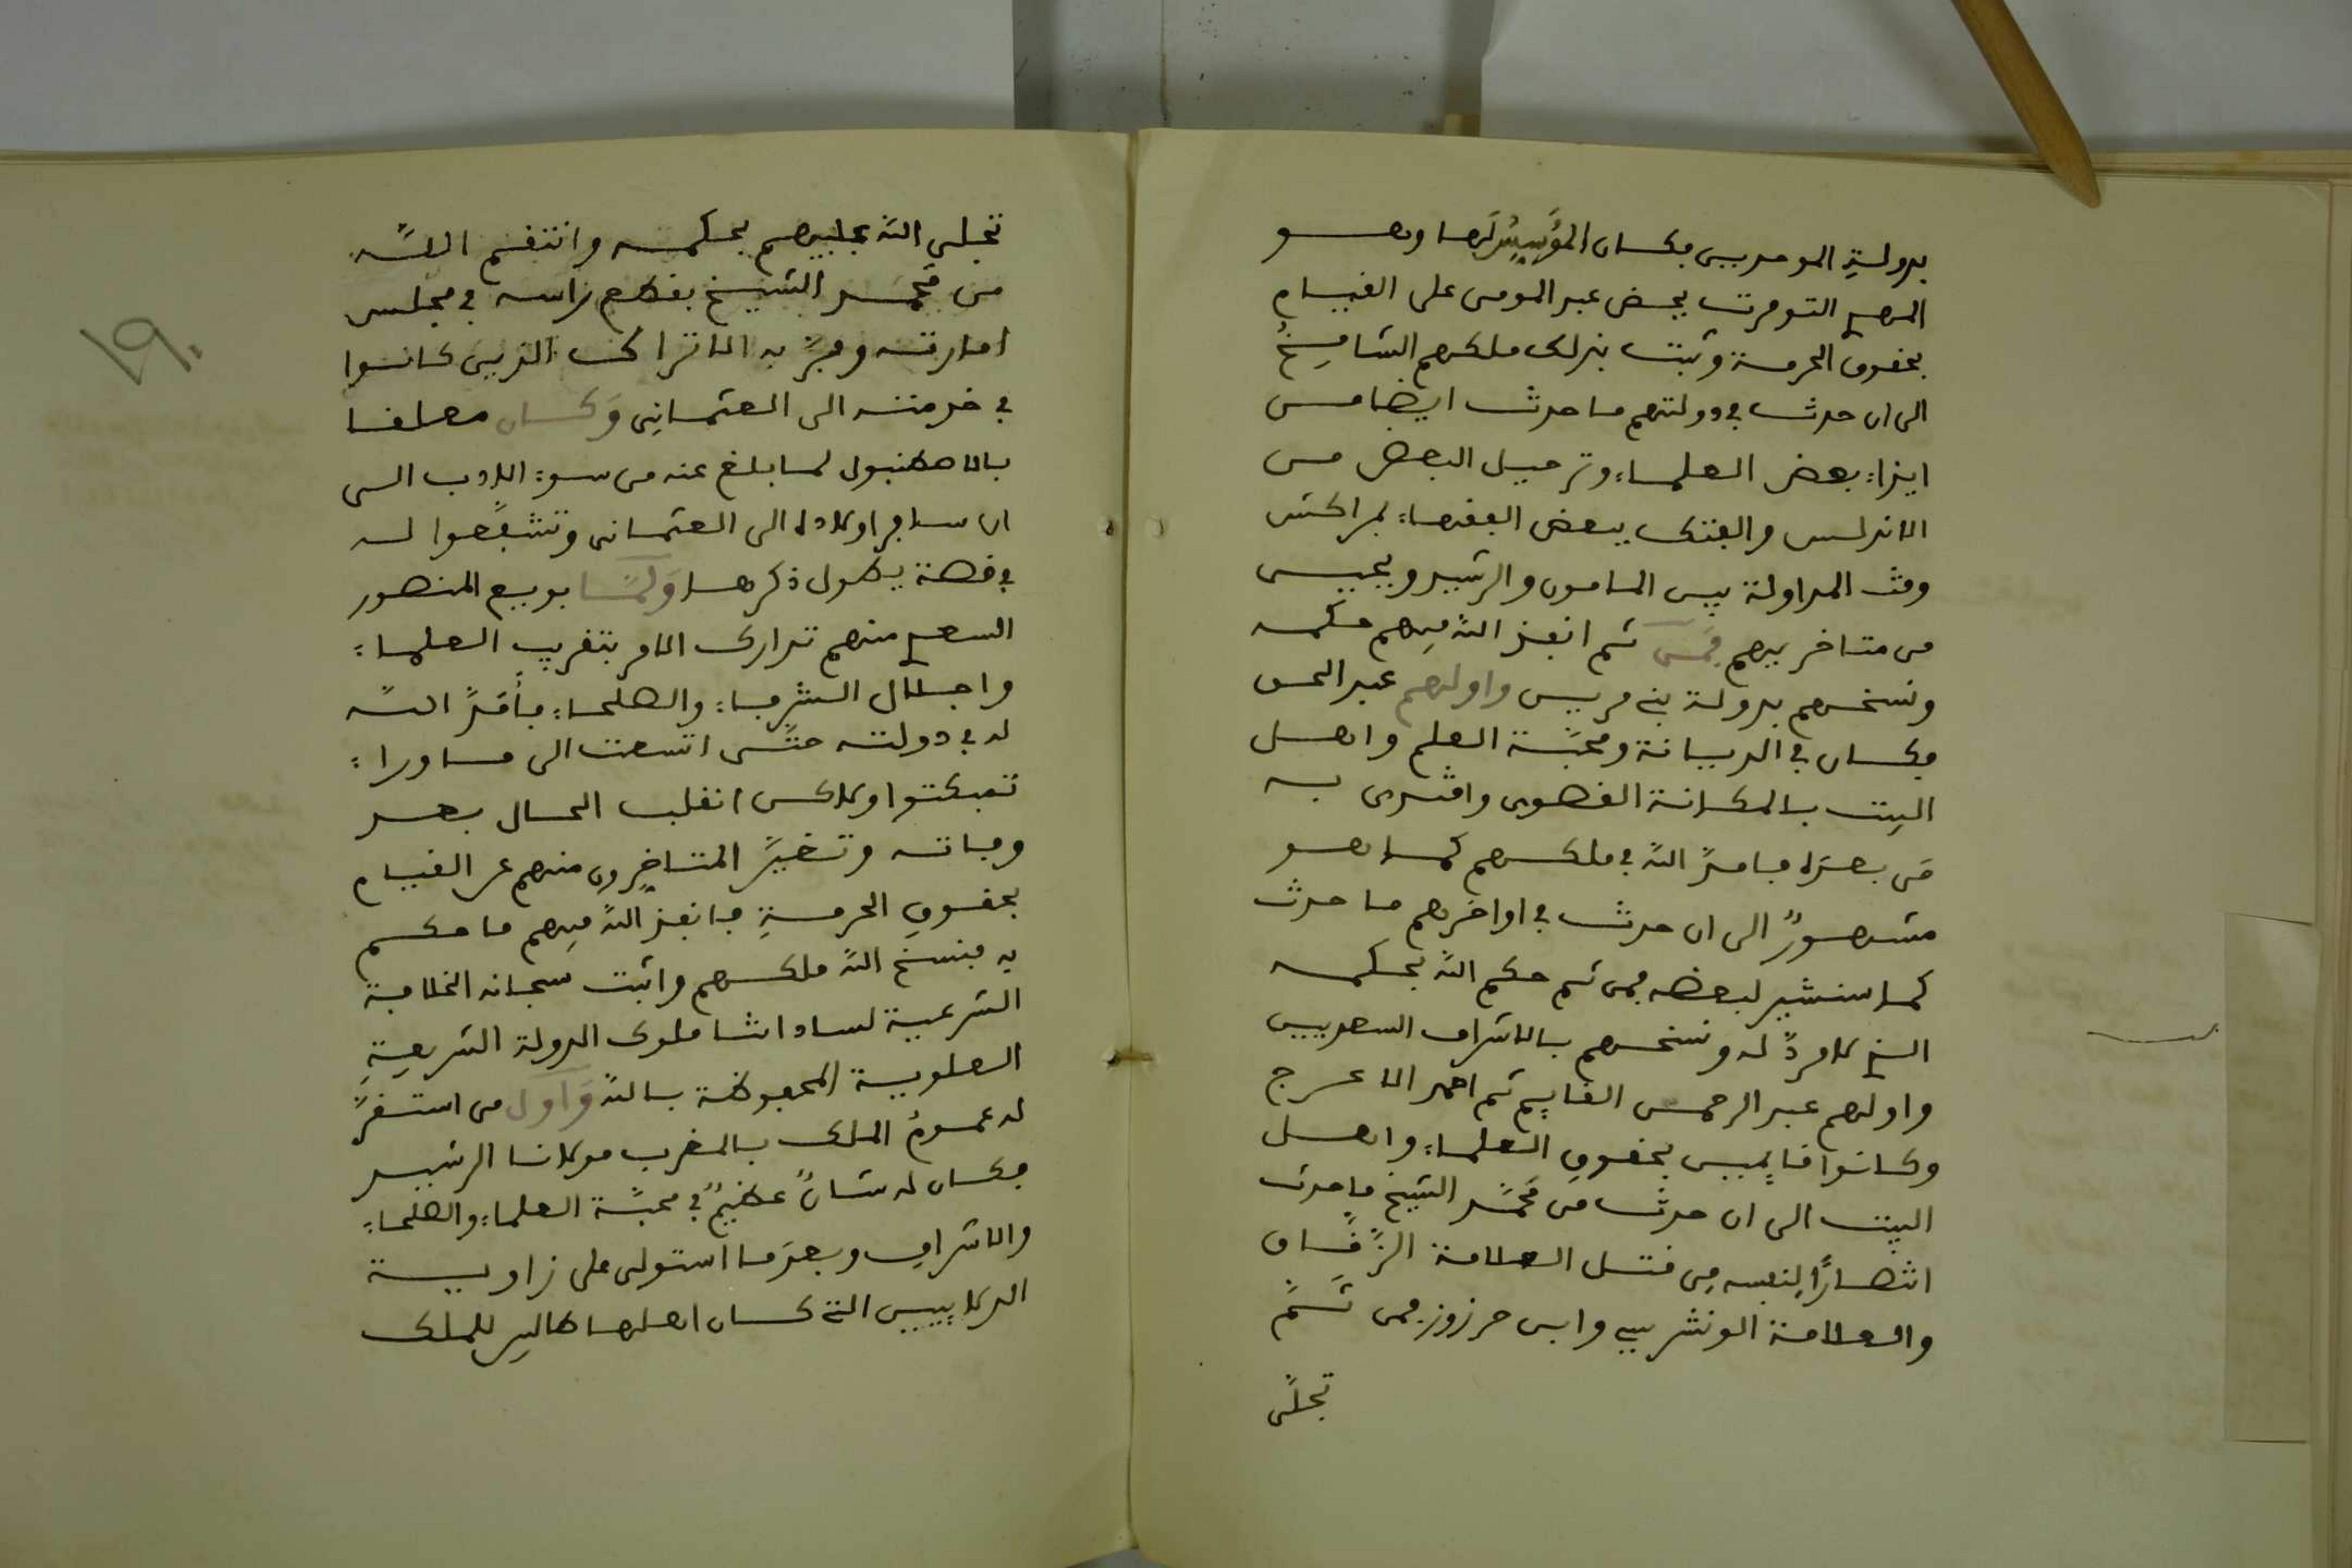 بدولةِ الموحدين فكان المؤَسِّسُ لَها وهو
المهدي التومرت يحض عبد المومن على القيام
بحقوق الحرمة وثبت بذلك ملكهم الشامِخُ
الى ان حدث في دولتهم ما حدث ايضا من
ايذاء بعض العلماء وترحيل البعض من
الاندلس والفتك ببعض الفقهاء بمراكش
وقت المداولة بين المامون والرشيد ويحيى
من متاخريهم فمن ثم انفذ الله فيهم حكمه
ونسخهم بدولة بني مرين واولهم عبد الحق
فكان في الديانة ومحبَّة العلم واهل
البيت بالمكانة القصوى واقتدى به
مَن بعدَه فامدَّ الله في ملكهم كما هو
مشهورٌ الى ان حدث في اواخرهم ما حدث
كما سنشير لبعضه فمن ثم حكم الله بحكمه
الذي لا مردَّ له ونسخهم بالاشراف السعديين
واولهم عبد الرحمن القايم ثم احمد الاعرج
وكانوا قايمين بحقوق العلماء واهل
البيت الى ان حدث من مَحمَّد الشيخ ما حدث
انتصارًا لِنفسه مِن قتل العلامة الزَّقَّاق
والعلامة الونشريسي وابن حرزوز فمن ثَمَّ
تجلَّى
تجلى الله عليهم بحكمه وانتقم اللَّه
من مَحمَّد الشيخ بقطع راسه في مجلس
امارته وفرَّ به الاتراك الذين كانوا
في خدمته الى العثمانِي وَكان معلقا
بالاصطنبول لما بلغ عنه من سوء الادب الى
ان سافر اولاده الى العثماني وتشفَّعوا له
في قصة يطول ذكرها وَلمَّا بويع المنصور
السعدي منهم تدارك الامر بتقريب العلماء
واجلال الشرفاء والصلحاء فأمَدَّ اللَّه
له في دولته حتَّى اتسعت الى ما وراء
تنبكتوا ولاكن انقلب الحال بعد
وفاته وتغيَّر المتاخِرون منهم عن القيام
بحقوقِ الحرمةِ فانفذ اللهُ فيِهم ما حكم
به فنسخ اللهُ ملكهم واثبت سبحانه الخلافة
الشرعية لساداتنا ملوك الدولة الشريفةِ
العلوية المحفوظة باللهِ وَاول من استقرَّ
له عمومُ الملك بالمغرب مولانا الرشيد
فكان له شانٌ عظيمٌ في محبَّة العلماء والصلحاء
والاشرافِ وبعدَما استولى على زاوية
الدلاييين التي كان اهلها طالبين للملك